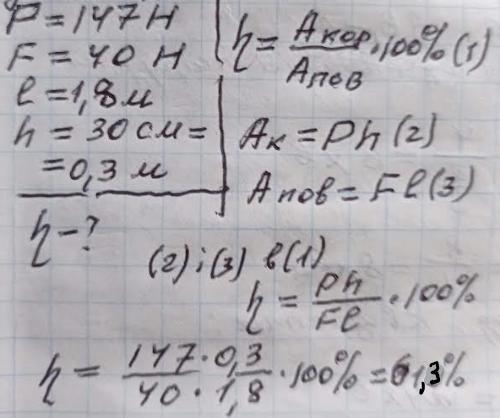 P = 147 Н
F = 40 Н
l = 1,8 м
h = 30 см =
= 0,3 м
η - ?
η = Aкор / Aпов · 100% (1)
Aк = Ph (2)
Aпов = Fl (3)
(2) i (3) в (1)
η = Ph / Fl · 100%
η = 147 · 0,3 / 40 · 1,8 · 100% = 61,3%